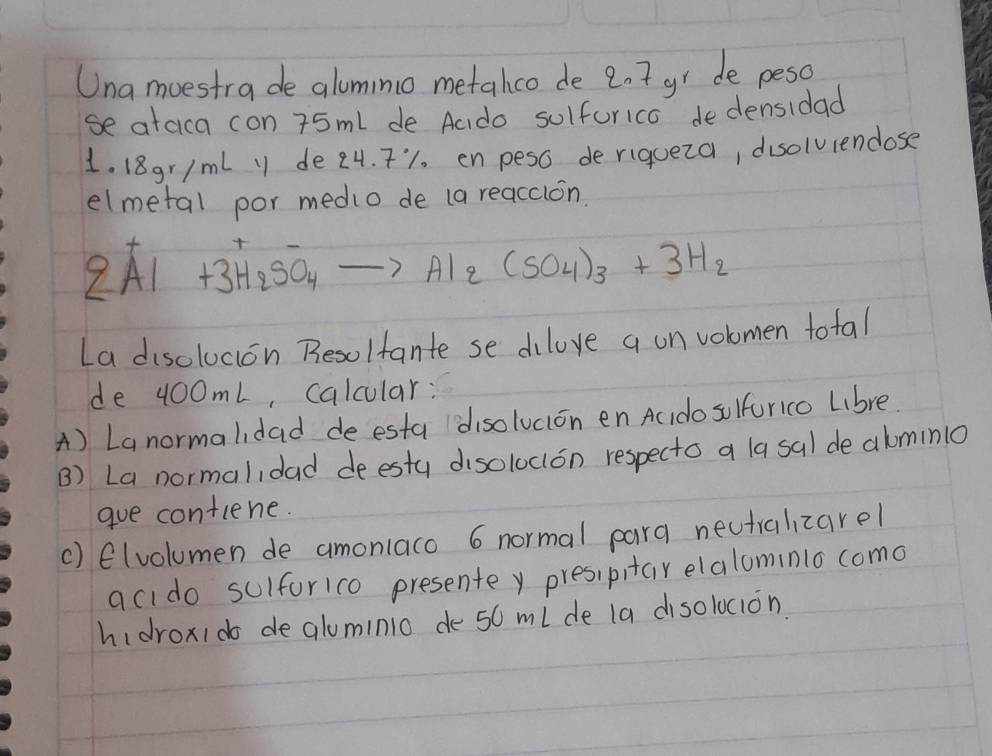 Una muestra de aluminio metalico de 2.7 gr de peso
se ataca con 75mL de Acido sulfurico de densidad
1.18gr/mL y de 24.7% en peso de riqueza, disolviendose
el metal por medio de la reacción.
+ + -
2Al + 3H2SO4 —> Al2 (SO4)3 + 3H2
La disolución Resultante se diluye a un volumen total
de 400mL, Calcular:
A) La normalidad de esta disolución en Acido sulfurico Libre.
B) La normalidad de esta disolución respecto a la sal de aluminio
que contiene.
c) El volumen de amoniaco 6 normal para neutralizar el
acido sulfurico presente y presipitar el aluminio como
hidroxido de aluminio de 50 mL de la disolución.